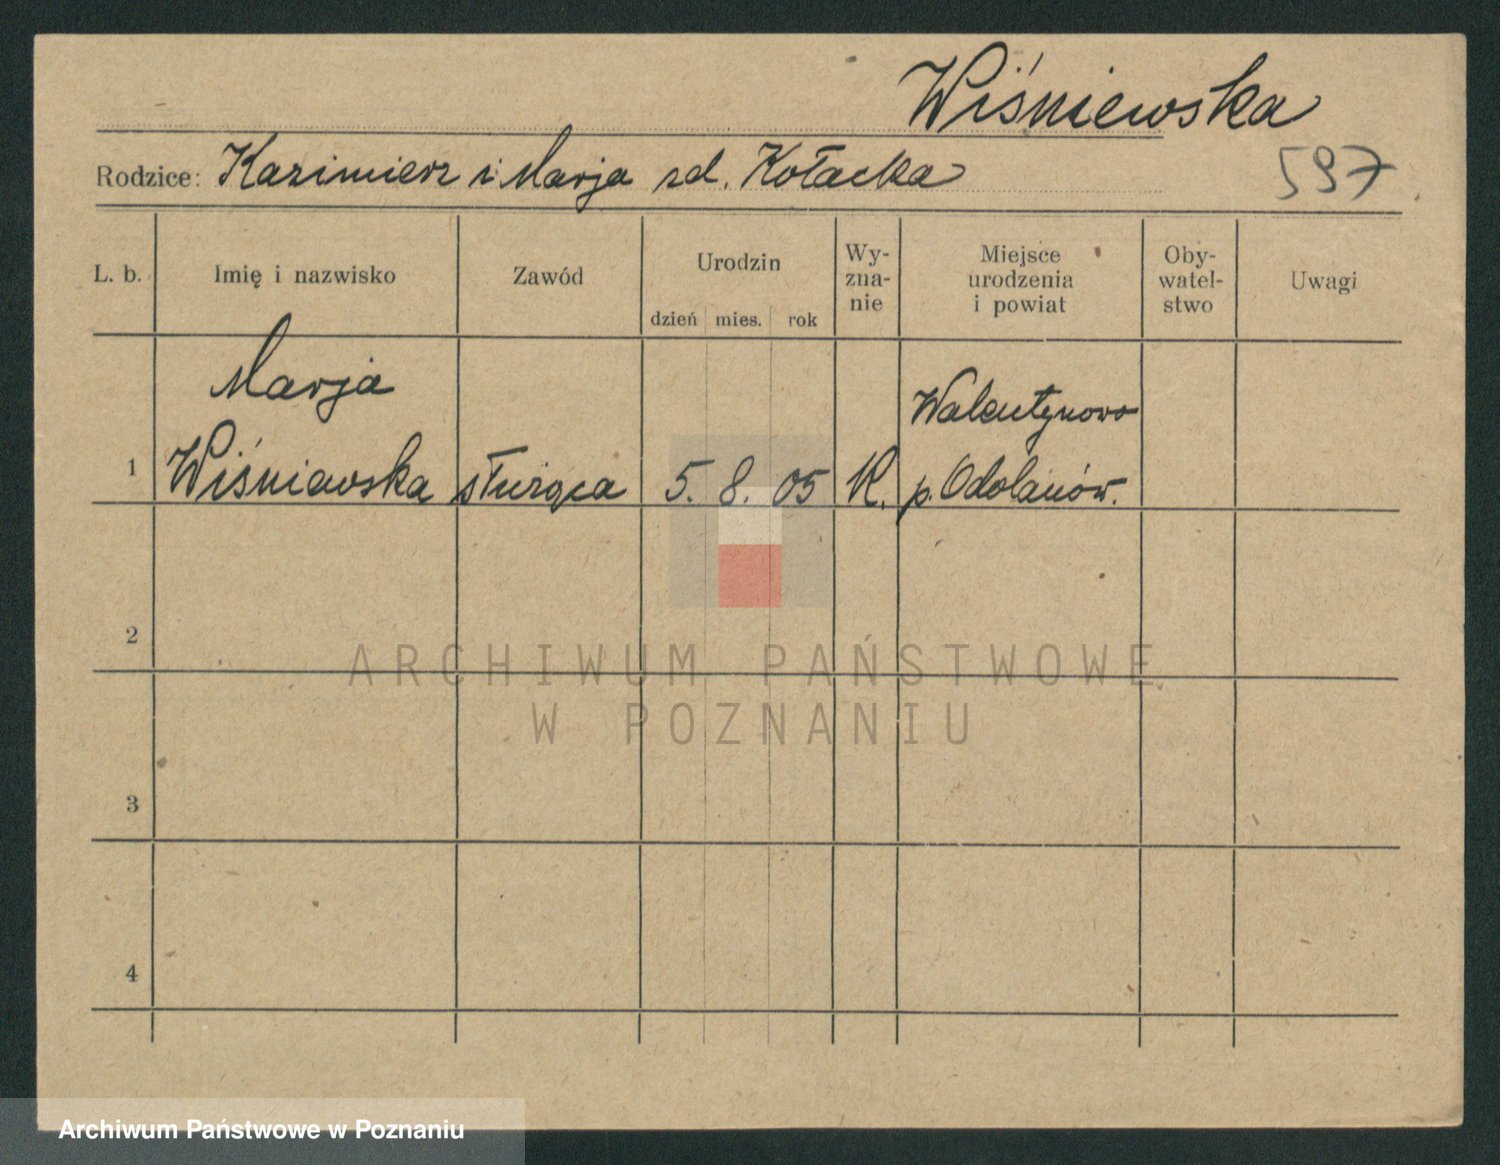 Wiśniewska
Rodzice: Kazimierz i Marja zd. Kołacka
597
L. b.
Imię i nazwisko
Zawód
Urodzin
dzień mies. rok
Wy-
zna-
nie
Miejsce
urodzenia
i powiat
Oby-
watel-
stwo
Uwagi
1
Marja
Wiśniewska
służąca
5. 8. 05
K.
Walentynowo
p. Odolanów.
2
3
4
ARCHIWUM PAŃSTWOWE
W POZNANIU
Archiwum Państwowe w Poznaniu